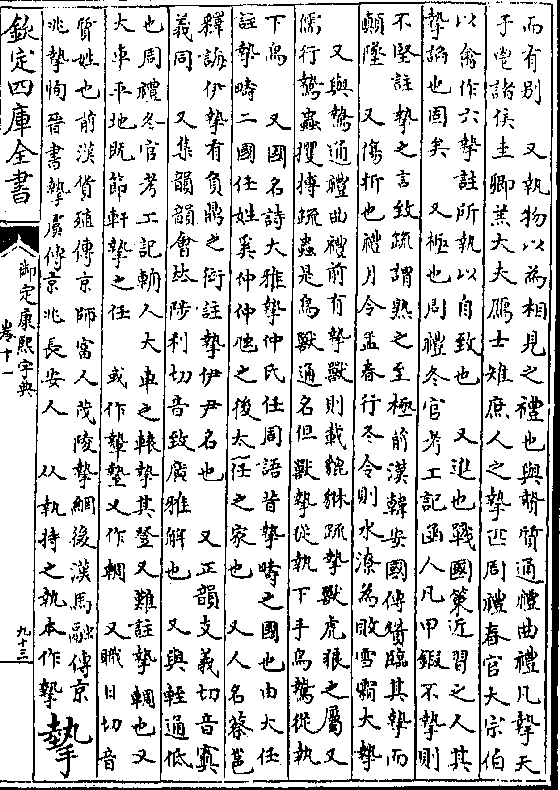 而有别　又執物以為相見之禮也與贄質通禮曲禮凡摯天
子鬯諸侯圭卿羔大夫鴈士雉庶人之摯匹周禮春官大宗伯
以禽作六摯註所執以自致也　又進也戰國策近習之人其
摯諂也固矣　又極也周禮冬官考工記函人凡甲鍜不摯則
不堅註摯之言致疏謂熟之至極前漢韓安國傳贊臨其摯而
顛墜　又傷折也禮月令孟春行冬令則水潦為敗雪霜大摯
　又與鷙通禮曲禮前有摯獸則載貔貅疏摯獸虎狼之屬又
儒行鷙蟲攫搏疏蟲是鳥獸通名但獸摯從執下手鳥鷙從執
下鳥　又國名詩大雅摯仲氏任周語昔摯疇之國也由大任
註摯疇二國任姓奚仲仲虺之後太任之家也　又人名蔡邕
釋誨伊摯有負鼎之衒註摯伊尹名也　又正韻支義切音寘
義同　又集韻韻會𠀤陟利切音致廣雅解也　又與輊通低
也周禮冬官考工記輈人大車之轅摯其登又難註摯輖也又
大車平地既節軒摯之任　或作𨎌墊又作輖　又職日切音
質姓也前漢貨殖傳京師富人茂陵摯網後漢馬融傳京
兆摯恂晉書摯虞傳京兆長安人　从執持之執本作摯　𡠗
欽定四庫全書
御定康熙字典
卷十一
九十三